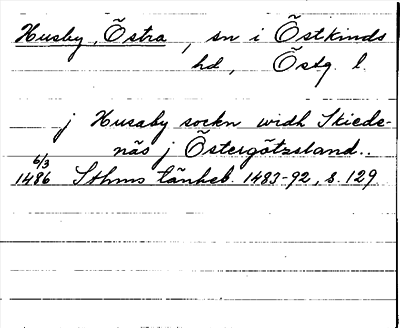 Husby, Östra, sn i Östkinds
hd, Östg. l.
j Husaby sockn widh Skiede-
näs j Östergötzland..
6/3
1486 Sthms tänkeb. 1483-92, s. 129